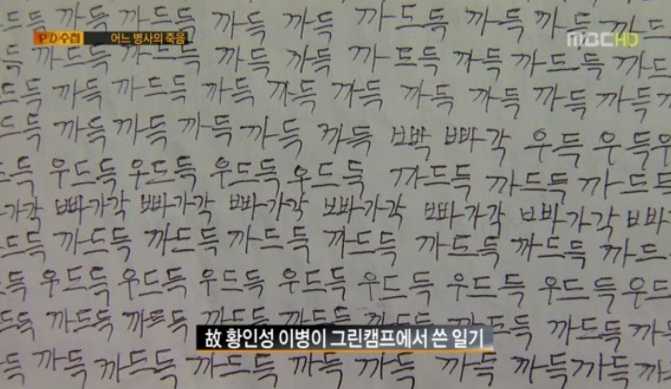 드득 까득 까드득 까득 까드득 까득 까득 까드득
PD수첩 어느 병사의 죽음
MBC HD
까득 까드득 까득 까드득 까득 까득 까드득 까득
까드득 까득 까득 까득 까득 까득 까득 까득
까득 까득 까득 까득 까득 빡 빠각 우득 우득
우드득 우드득 우드득 우드득 까드득 까드득 까드득
빠가각 빠가각 빠가각 빠가각 빠가각 빠가각 빠가각
까드득 까드득 까드득 까드득 까드득 까드득 까드
우드득 우드득 우드득 우드득 우드득 우드득 우드득 우드득
까드득 까드득 까드득
故 황인성 이병이 그린캠프에서 쓴 일기
까득 까득 까득 까득 까득 까득 까득 까득